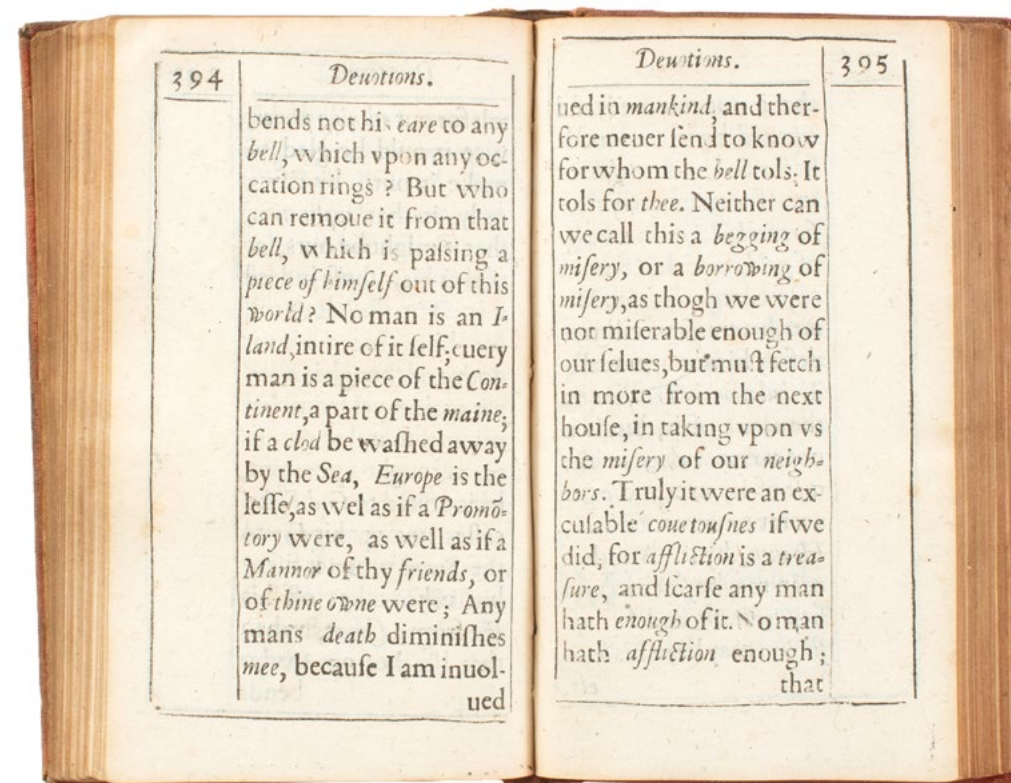 394
Deuotions.
bends not his eare to any
bell, which vpon any oc-
cation rings ? But who
can remoue it from that
bell, which is paſsing a
piece of himſelf out of this
world? No man is an I-
land, intire of it ſelf; euery
man is a piece of the Con-
tinent, a part of the maine;
if a clod be waſhed away
by the Sea, Europe is the
leſſe, as wel as if a Promō-
tory were, as well as if a
Mannor of thy friends, or
of thine owne were ; Any
mans death diminiſhes
mee, becauſe I am inuol-
ued
Deuotions.
395
ued in mankind, and ther-
fore neuer ſend to know
for whom the bell tols; It
tols for thee. Neither can
we call this a begging of
miſery, or a borrowing of
miſery, as thogh we were
not miſerable enough of
our ſelues, but muſt fetch
in more from the next
houſe, in taking vpon vs
the miſery of our neigh-
bors. Truly it were an ex-
cuſable couetouſnes if we
did, for affliction is a trea-
ſure, and ſcarſe any man
hath enough of it. No man
hath affliction enough ;
that